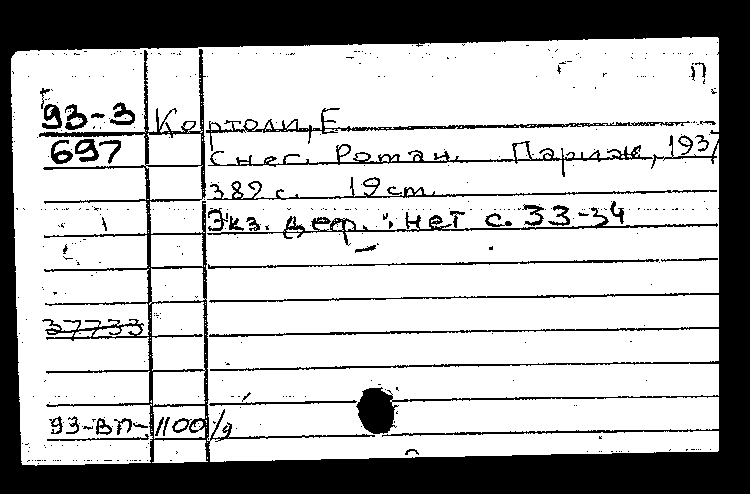 П
93-3 Кортоли, Е
697 Снег. Роман. Париж, 1937
389 с. 19 cm.
Экз. деф.: нет с. 33-34
37733
93-ВП-1100/9